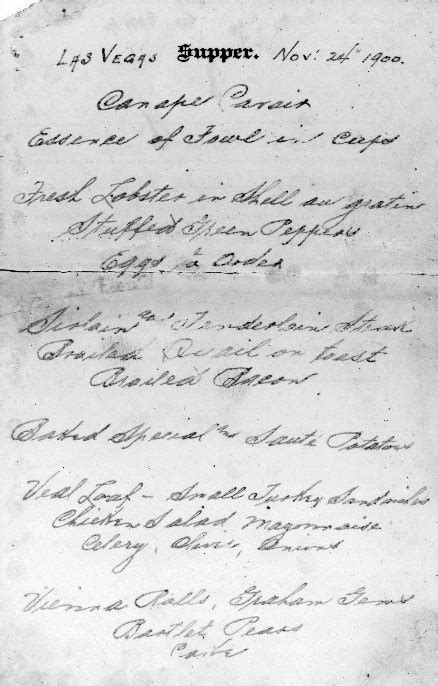 Las Vegas Supper. Nov. 24th 1900.
Canape Caviar
Essence of Fowl in Cups
Fresh Lobster in Shell au gratin
Stuffed Green Peppers
Eggs to Order
Sirloin and Tenderloin Steak
Broiled Quail on toast
Broiled Bacon
Baked Special and Saute Potatoes
Veal Loaf - Small Turkey Sandwiches
Chicken Salad Mayonnaise
Celery, Olives, Onions
Vienna Rolls, Graham Gems
Bartlet Pears
Cake